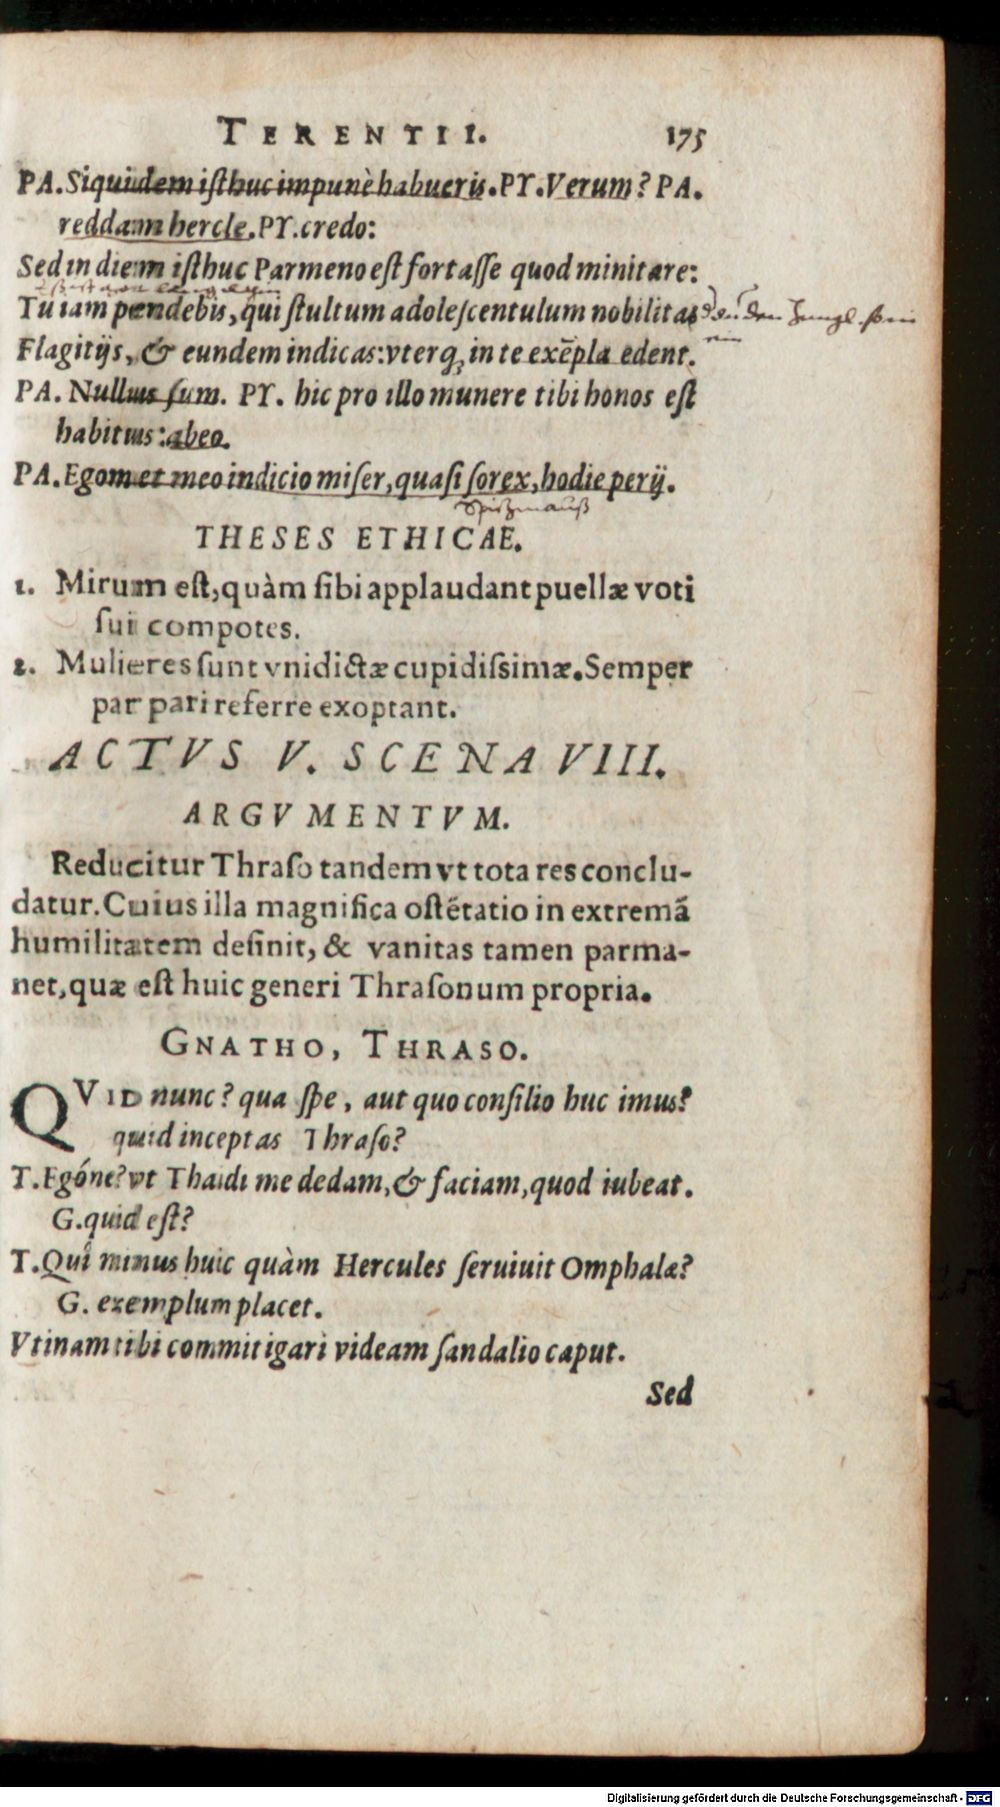 TERENTII. 175
PA. Siquidem isthuc impunè habueris. PY. Verum? PA.
reddam hercle. PY. credo:
Sed in diem isthuc Parmeno est fortasse quod minitare:
Tu iam pendebis, qui stultum adolescentulum nobilitas
Flagitijs, & eundem indicas: vterq; in te exēpla edent.
PA. Nullus sum. PY. hic pro illo munere tibi honos est
habitus: abeo.
PA. Egomet meo indicio miser, quasi sorex, hodie perij.
Spitzmauß
THESES ETHICAE.
1. Mirum est, quàm sibi applaudant puellæ voti
sui compotes.
2. Mulieres sunt vnidictæ cupidissimæ. Semper
par pari referre exoptant.
ACTVS V. SCENA VIII.
ARGVMENTVM.
Reducitur Thraso tandem vt tota res conclu-
datur. Cuius illa magnifica ostētatio in extremā
humilitatem desinit, & vanitas tamen parma-
net, quæ est huic generi Thrasonum propria.
GNATHO, THRASO.
QVID nunc? qua spe, aut quo consilio huc imus?
quid inceptas Thraso?
T. Egóne? vt Thaidi me dedam, & faciam, quod iubeat.
G. quid est?
T. Quî minus huic quàm Hercules seruiuit Omphalæ?
G. exemplum placet.
Vtinam tibi commitigari videam sandalio caput.
Sed
Digitalisierung gefördert durch die Deutsche Forschungsgemeinschaft - DFG